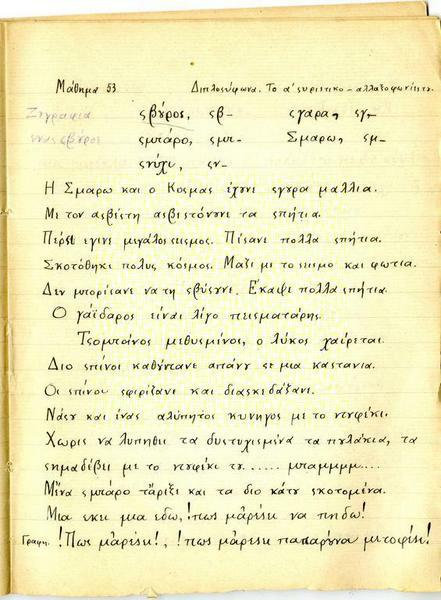 Μάθημα 53 Διπλοσύφωνα. Το α' ςυριστικο - αλλαξοφωνίεται
Ζυγραφια ςβȣ́ρος, ςβ- ςγαρα, ςγ-
ενας ςβȣ́ρος ςμπάρο, ςμπ- Σμαρω, ςμ-
ςνύχι, ςν-
Η Σμαρω και ο Κοςμας έχȣνε ςγȣρα μαλλια.
Με τον αςβέςτη αςβεςτόνȣνε τα ςπήτια.
Πέρςι εγινε μεγάλος ςιςμος. Πέςανε πολλα ςπήτια.
Σκοτόθηκε πολυς κόςμος. Μαζι με το ςιςμο και φωτια.
Δεν μπορέςανε να τη ςβύςȣνε. Εκαψε πολλα ςπήτια.
Ο γάϊδαρος είναι λίγο πειςματάρης.
Τςομπάνος μεθυςμένος, ο λύκος χαίρεται.
Διο ςπίνοι καθόντανε απάνȣ ςε μια καςτανια.
Οι ςπίνοι ςφιρίζανε και διαςκεδάζανε.
Νάςȣ και ένας αλύπητος κυνηγος με το ντȣφέκι.
Χωρις να λυπηθει τα δυςτυχιςμένα τα πȣλάκια, τα
ςημαδέβει με το ντȣφέκι τȣ...... μπαμμμμ....
Μ̓ ένα ςμπάρο τ̓ άριξε και τα διο κάτȣ ςκοτομένα.
Μια εκει μια εδω, !πως μ̓ αρέςει να πηδω!
Γραφη. !Πως μ̓ αρέςει!, !πως μ̓ αρέςει παπαρȣνα με τοφέςι!